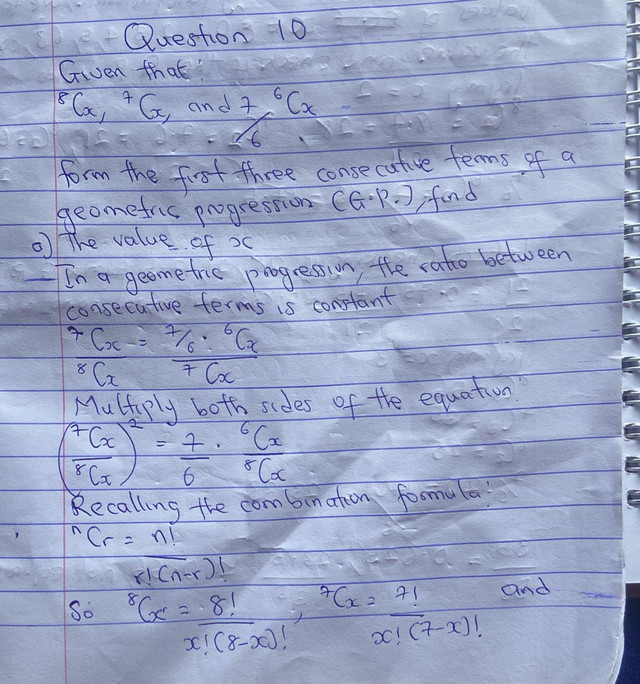 Question 10
Given that:
⁸Cx, ⁷Cx, and 7/6 ⁶Cx
form the first three consecutive terms of a
geometric progression (G.P.), find
a) The value of x
— In a geometric progression, the ratio between
consecutive terms is constant
⁷Cx / ⁸Cx = 7/6 · ⁶Cx / ⁷Cx
Multiply both sides of the equation:
(⁷Cx / ⁸Cx)² = 7/6 · ⁶Cx / ⁸Cx
Recalling the combination formula:
ⁿCr = n! / r!(n-r)!
So ⁸Cx = 8! / x!(8-x)! , ⁷Cx = 7! / x!(7-x)! and